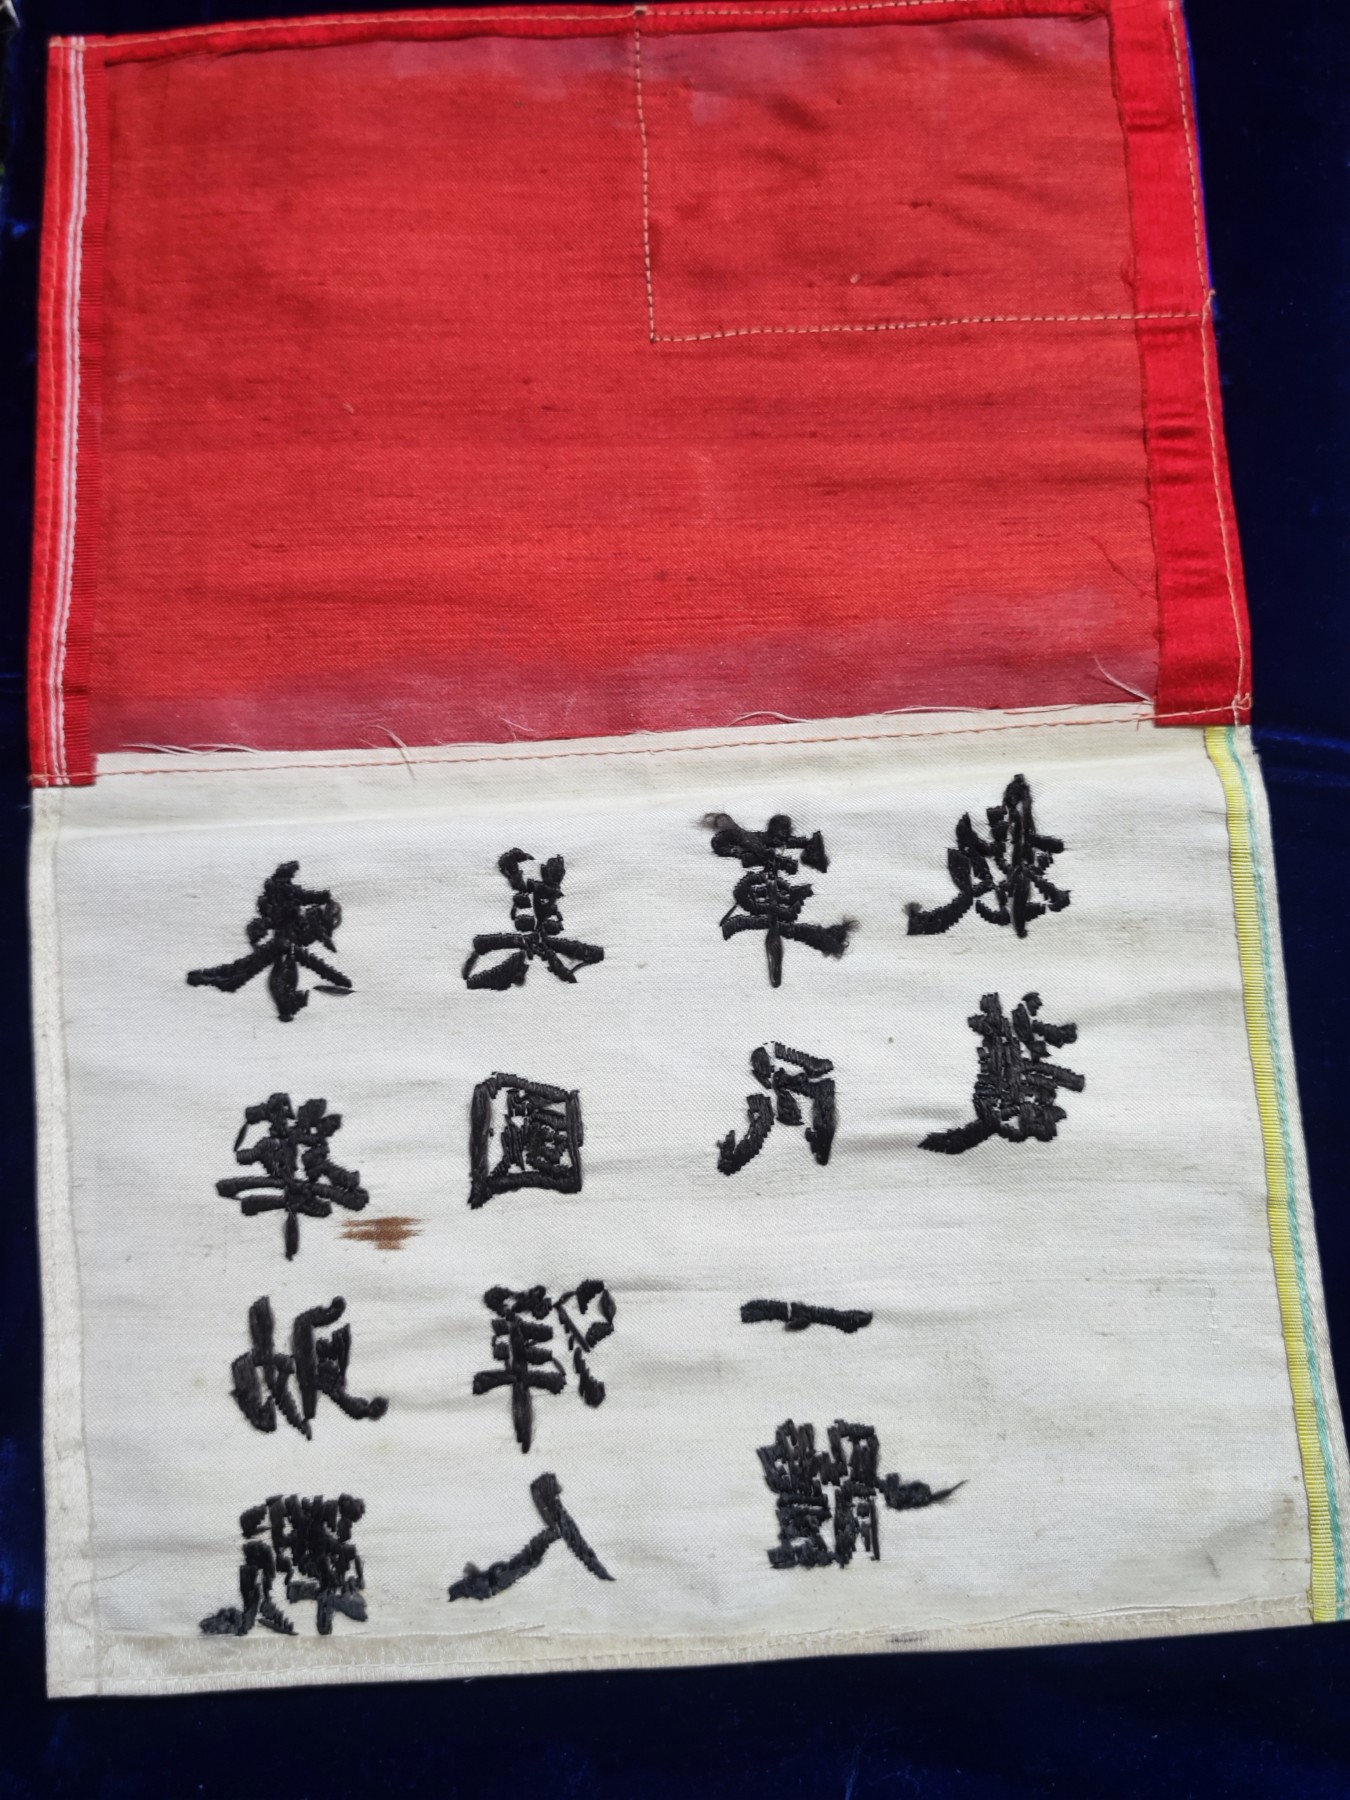 來華助戰
美國洋人
軍民一體
救護